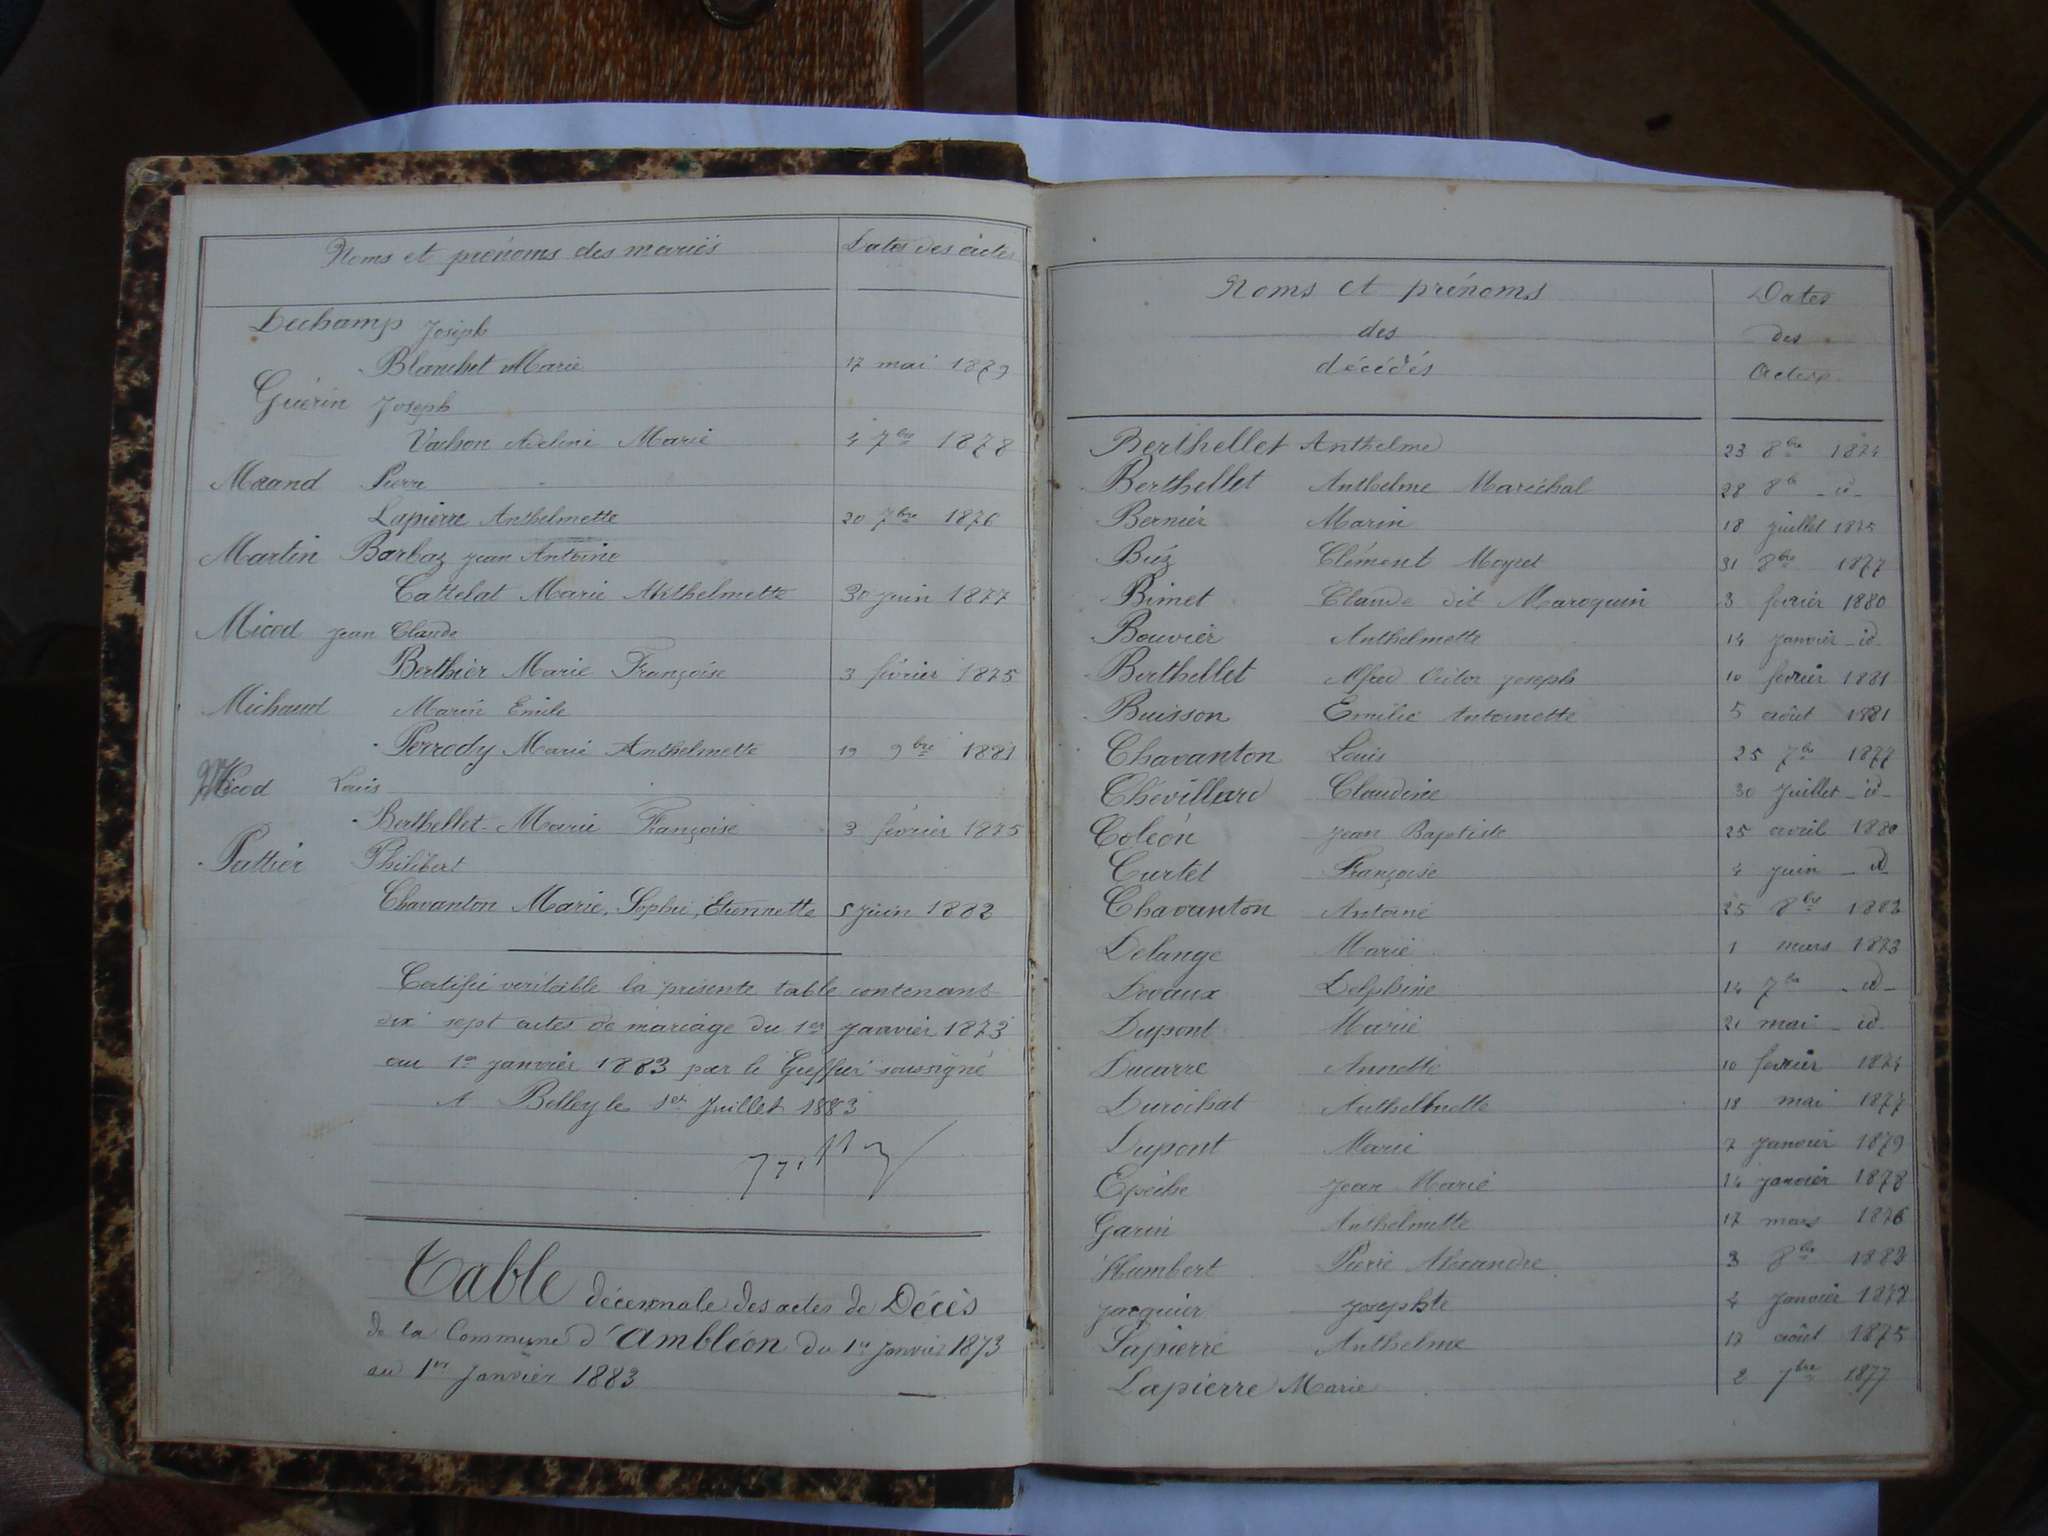 Noms et prénoms des mariés
Dates des actes
Dechamp Joseph
Blanchet Marie 17 mai 1879
Guérin Joseph
Vachon Adeline Marie 4 7bre 1878
Marand Pierre
Lapierre Anthelmette 20 7bre 1876
Martin Barbaz jean Antoine
Cattelat Marie Anthelmette 30 juin 1877
Micod jean Claude
Berthier Marie Françoise 3 février 1875
Michaud Marin Emile
Perrody Marie Anthelmette 19 9bre 1881
Micod Louis
Berthellet Marie Françoise 3 février 1875
Pattier Philibert
Chavanton Marie, Sophie, Etiennette 5 juin 1882
Certifié véritable la présente table contenant
dix sept actes de mariage du 1er janvier 1873
au 1er janvier 1883 par le Greffier soussigné
A Belley le 1er Juillet 1883
Table décennale des actes de Décès
de la Commune d'Ambléon du 1er Janvier 1873
au 1er Janvier 1883
Noms et prénoms
des
décédés
Dates
des
Actes
Berthellet Anthelme 23 8bre 1874
Berthellet Anthelme Maréchal 28 8bre - id -
Bernier Marin 18 juillet 1875
Biéz Clément Meyret 31 8bre 1877
Bimet Claude dit Maroquin 3 fevrier 1880
Bouvier Anthelmette 14 janvier - id -
Berthellet Alfred Victor joseph 10 fevrier 1881
Buisson Emilie Antoinette 5 août 1881
Chavanton Louis 25 7bre 1877
Chevillard Claudine 30 juillet - id -
Coléon jean Baptiste 25 avril 1880
Curtet Françoise 4 juin - id
Chavanton Antoine 25 8bre 1882
Delange Marie 1 mars 1873
Devaux Delphine 14 7bre - id -
Dupont Marie 21 mai - id -
Ducarre Annette 10 fevrier 1874
Durochat Anthelmette 18 mai 1877
Dupont Marie 7 janvier 1879
Epéche jean Marie 14 janvier 1878
Garin Anthelmette 17 mars 1876
Humbert Pierre Alexandre 3 8bre 1882
jacquier josephte 4 janvier 1878
Lapierre Anthelme 17 août 1875
Lapierre Marie 2 7bre 1877